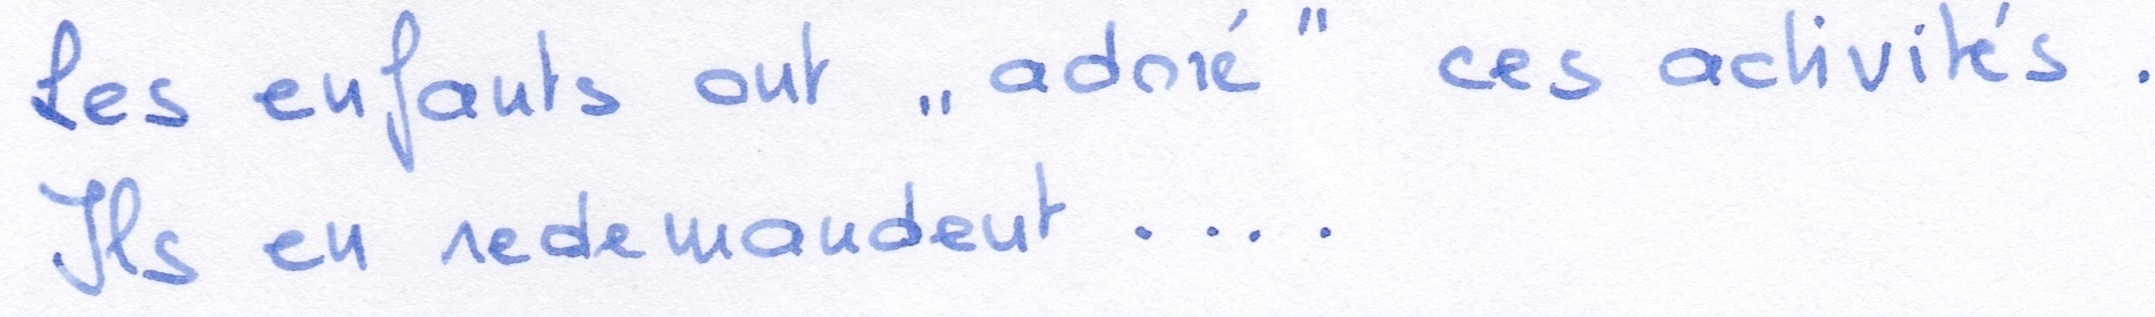 Les enfants ont „adoré" ces activités.
Ils en redemandent....